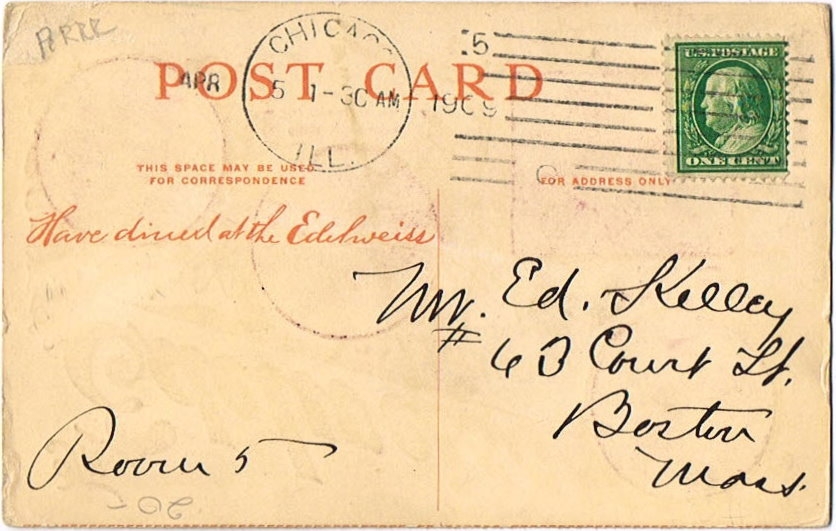 CHICAGO
5
APR
5 1-30 AM
1909
ILL.
POST CARD
U.S. POSTAGE
ONE CENT
THIS SPACE MAY BE USED
FOR CORRESPONDENCE
FOR ADDRESS ONLY
Have dined at the Edelweiss
Mr. Ed. Kelley
# 43 Court St.
Boston
Mass.
Room 5